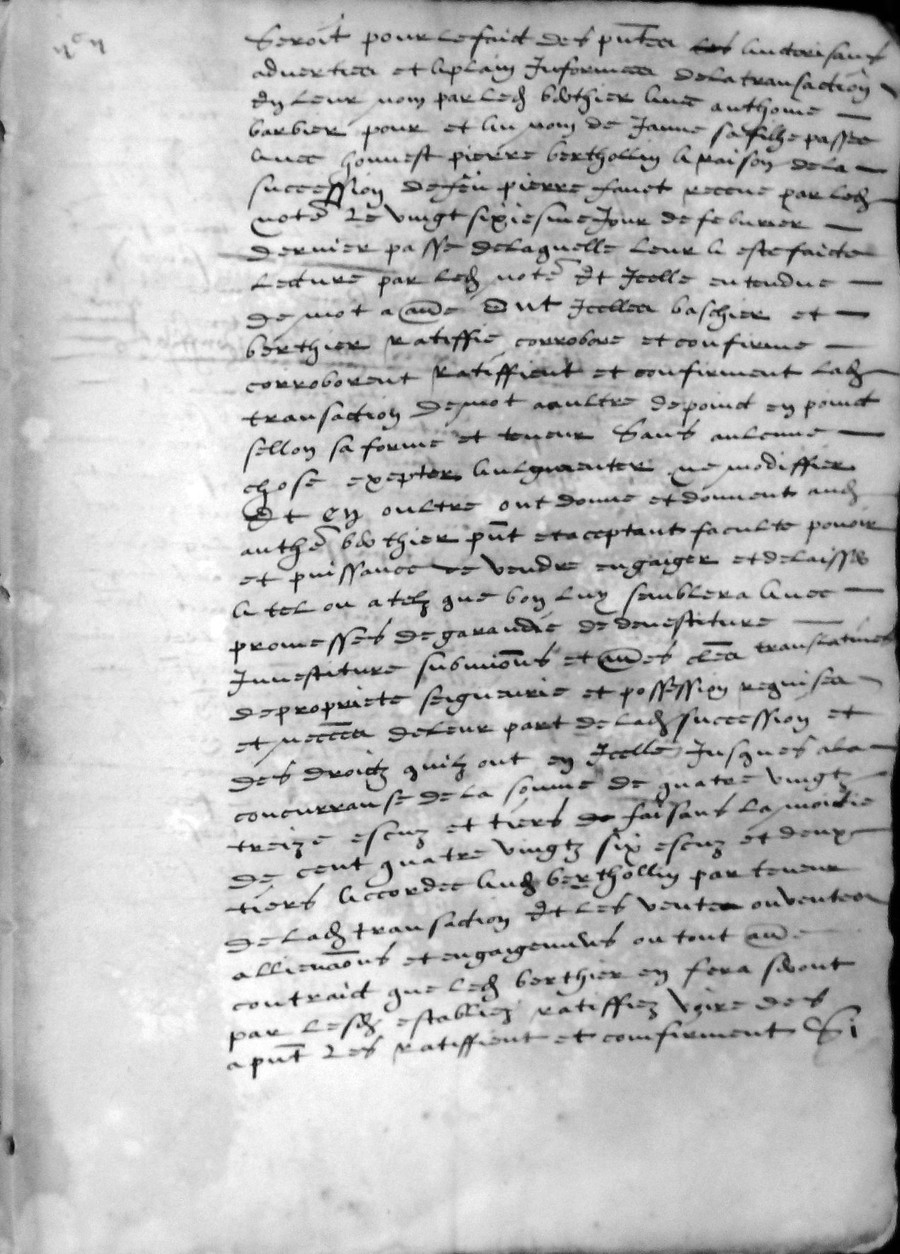 Seroit pour le faict des pntes les auctorisans
adverties et a plain Informees de la transaction
En leur nom par led berthier avec anthoine
barbier pour et au nom de Janne sa filhe passee
avec honnest pierre berthollin a raison de la
succession de feu pierre receue par led
note Le vingt sixiesme Jour de feburier
dernier passe de laquelle leur a este faicte
Lecture par led note Et Icelle entendue
de mot a aue Ont Icelles baschier et
berthier Ratiffie corrobore et confirme
corroborent Ratiffient et confirment lad
transaction de mot a aultre de poinct en poinct
sellon sa forme et teneur Sans aulcune
chose exepter aulgmenter ne modiffier
Et En oultre ont donne et donnent aud
anthe berthier pnt et aceptant faculte povoir
et puissance de vendre engaiger et delaisser
a tel ou a telz que bon luy semblera avec
promesses de garandie de devestiture
Investiture submions et aues cles translatives
de propriete seigneurie et possession requises
et necces de leur part de lad succession et
des droictz quilz ont en Icelle Jusques a la
concurranse de la somme de quatre vingtz
treize escuz et tiers faisans la moictie
de cent quatre vingtz six escuz et deux
tiers accordee aud berthollin par teneur
de lad transaction Et les ventes ou ventes
allienaons et engaigemens ou tout aue
contraict que led berthier en fera seront
par lesd establiez ratiffiez voire des
a pnt Les Ratiffient et comfirment Si